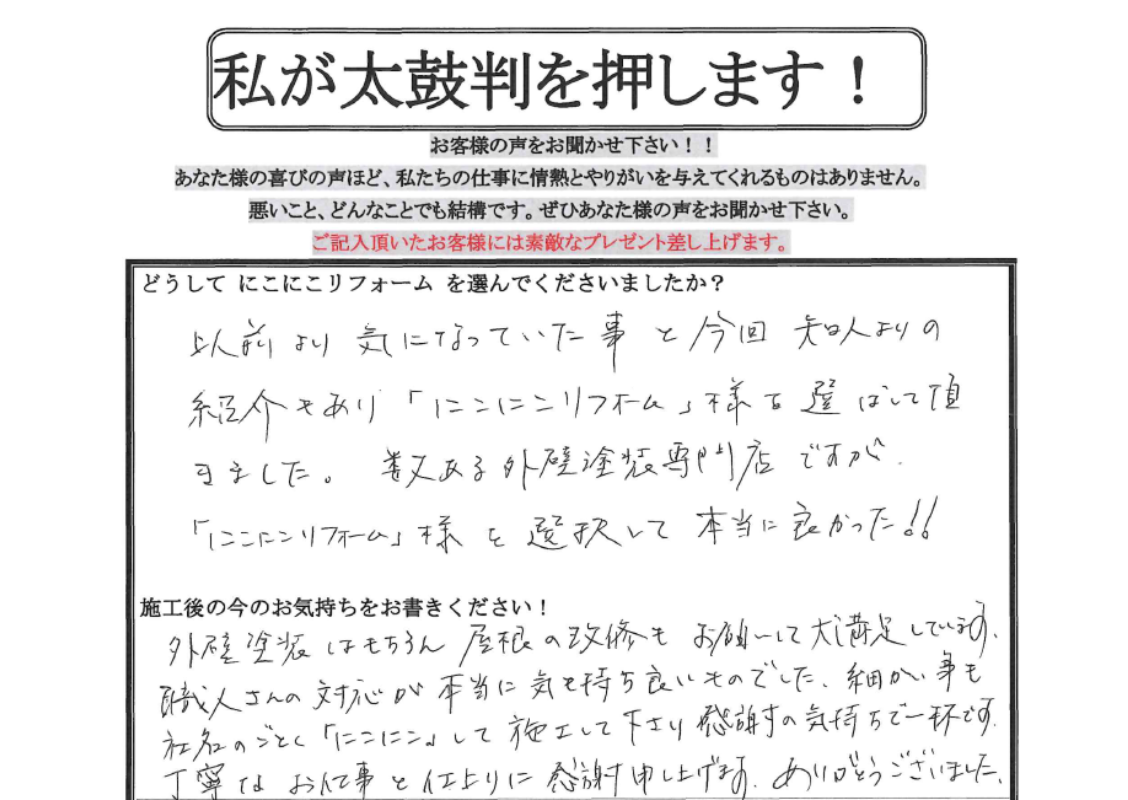 私が太鼓判を押します！
お客様の声をお聞かせ下さい！！
あなた様の喜びの声ほど、私たちの仕事に情熱とやりがいを与えてくれるものはありません。
悪いこと、どんなことでも結構です。ぜひあなた様の声をお聞かせ下さい。
ご記入頂いたお客様には素敵なプレゼント差し上げます。
どうして にこにこリフォーム を選んでくださいましたか？
以前より気になっていた事と今回知人よりの
紹介もあり「にこにこリフォーム」様を選ばして頂
きました。数ある外壁塗装専門店ですが、
「にこにこリフォーム」様を選択して本当に良かった!!
施工後の今のお気持ちをお書きください！
外壁塗装はもちろん屋根の改修もお願いして大満足しています。
職人さんの対応が本当に気持ち良いものでした、細かい事も
社名のごとく「にこにこ」して施工して下さり感謝の気持ちで一杯です。
丁寧なお仕事と仕上りに感謝申し上げます。ありがとうございました。